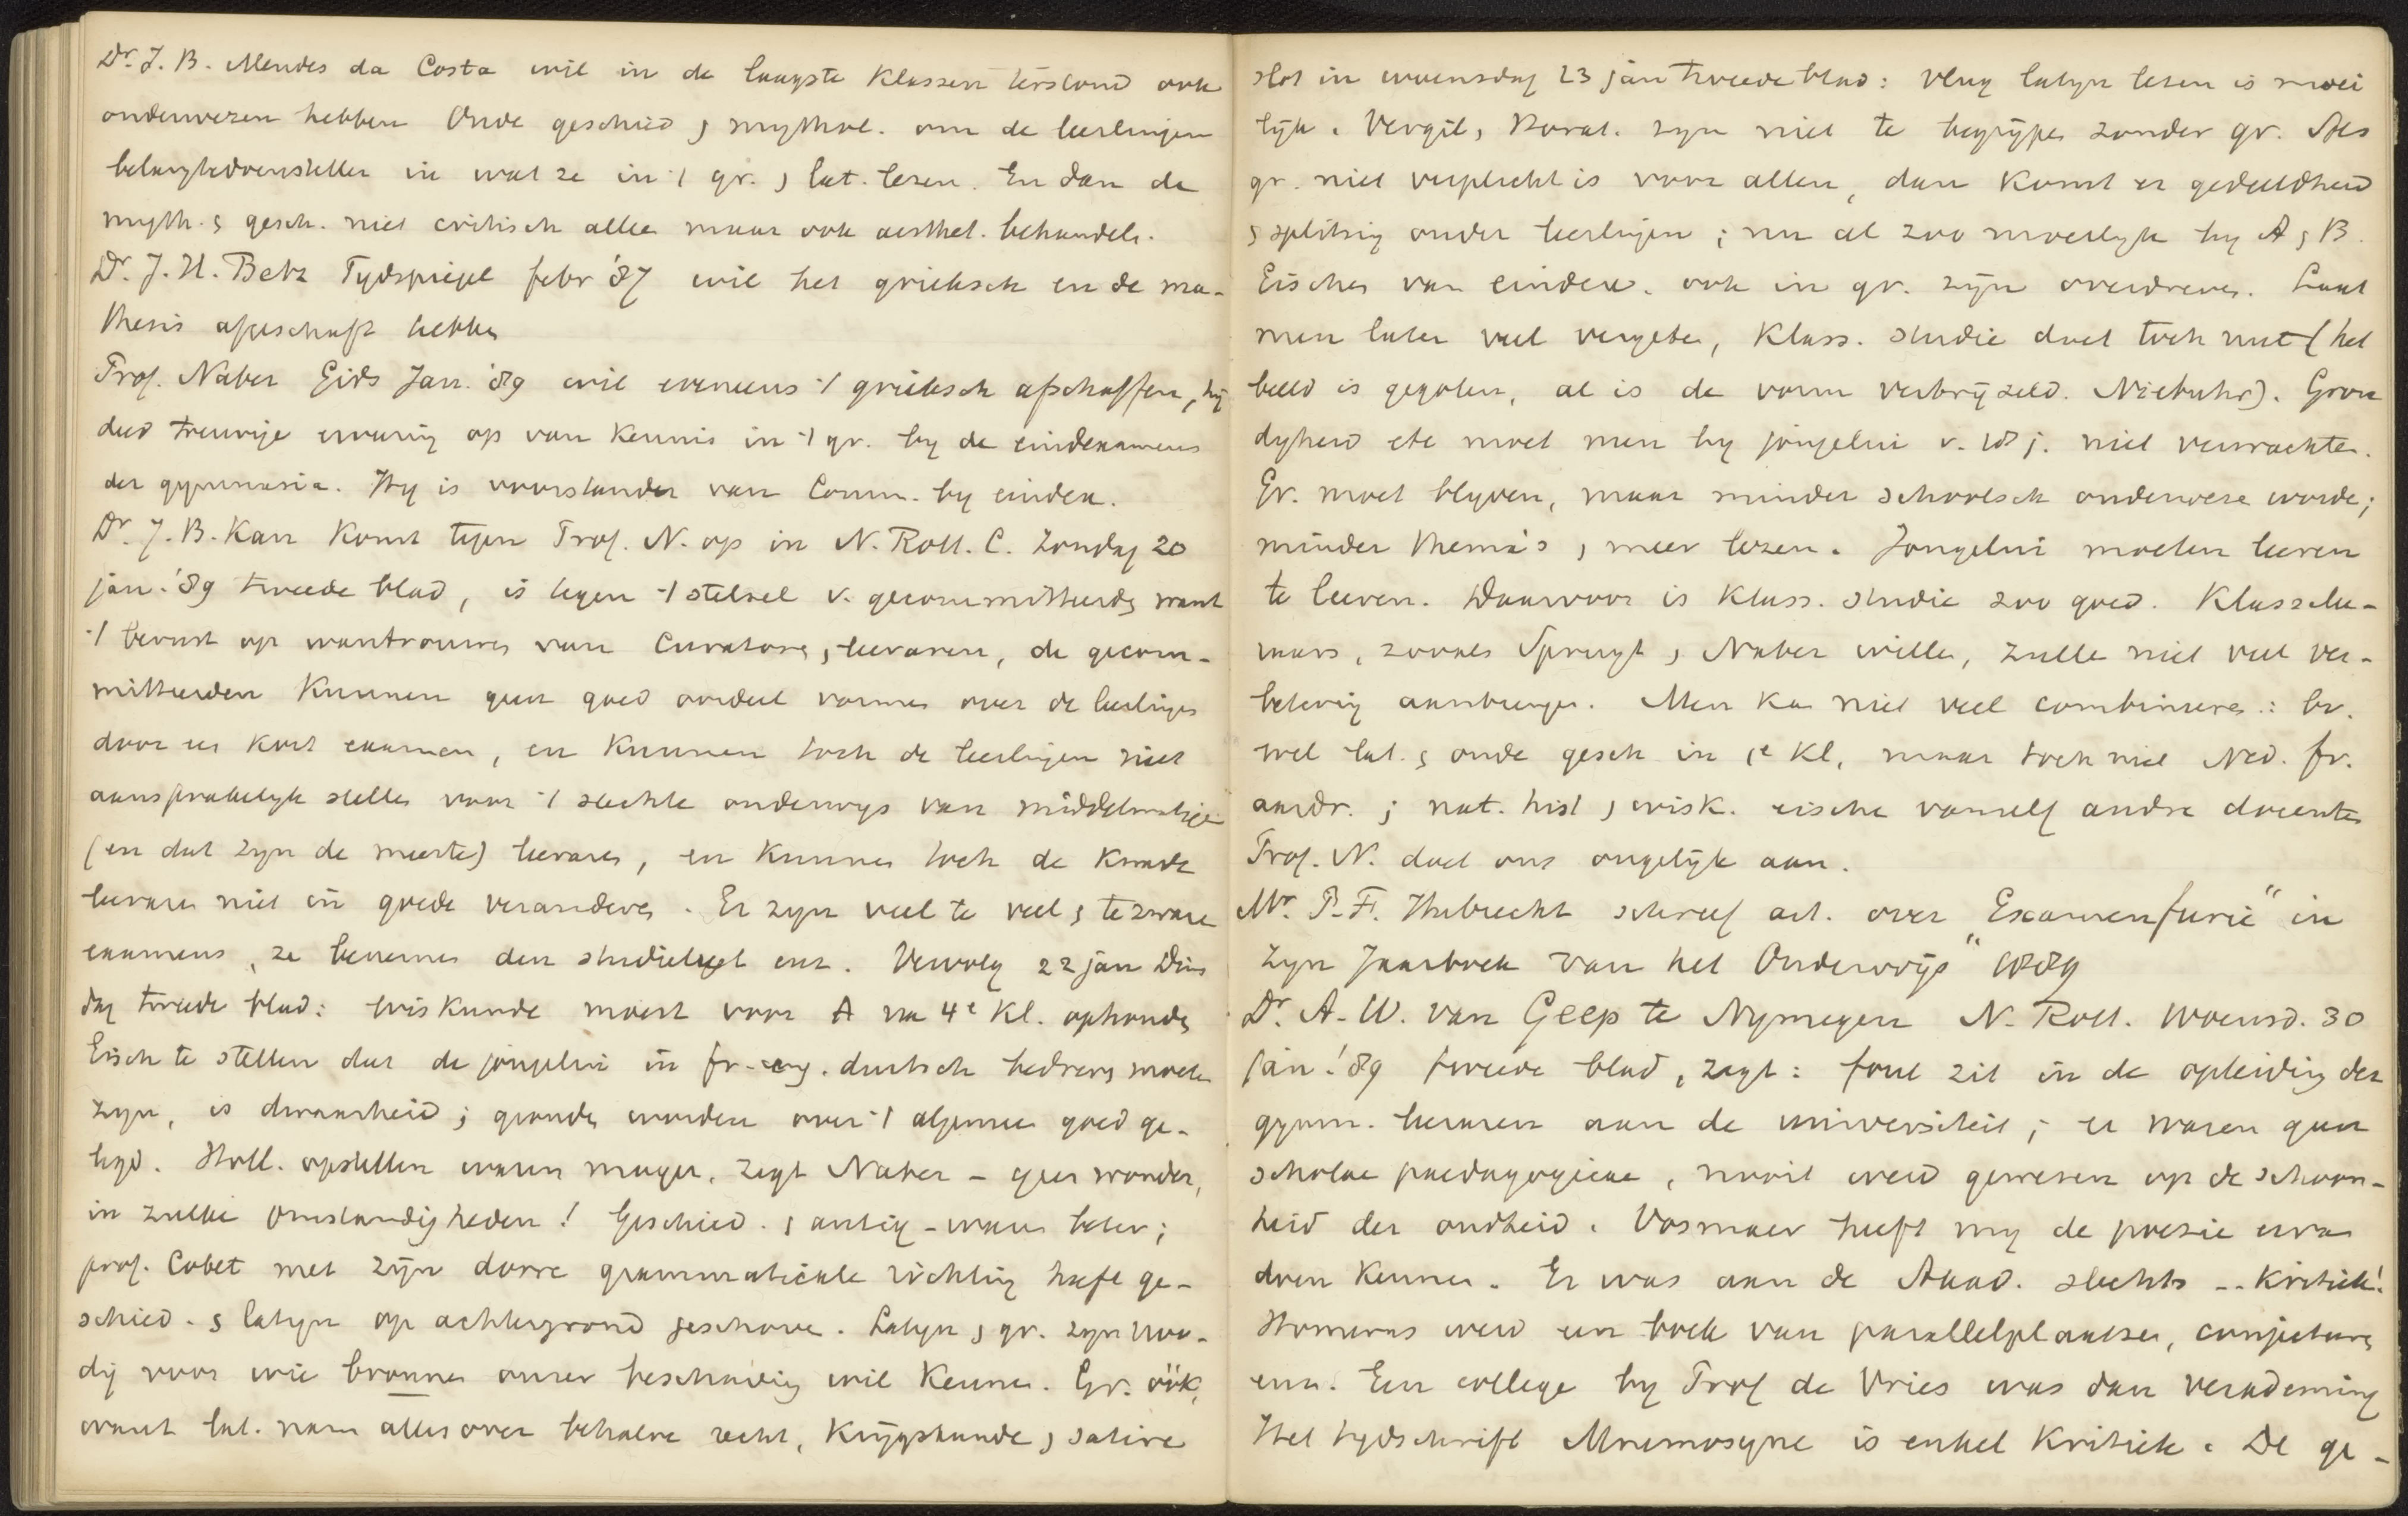 Dr. J. B. Mendes da Costa wil in de laagste klassen terstond ook
onderwezen hebben Oude geschied & mythol. om de leerlingen
belangtedoenstellen in wat ze in 't gr. & lat. lezen. En dan de
myth. & gesch. niet critisch allee maar ook aesthet. behandele.
Dr. J. H. Betz Tydspiegel febr '87 wil het grieksch en de ma-
thesis afgeschaft hebbe
Prof. Naber Gids Jan. '89 wil eveneens 't grieksch afschaffen, hij
deed treurige ervaring op van kennis in 't gr. by de eindexamens
der gymnasia. Hy is voorstander van Comm. by eindex.
Dr. J. B. Kan komt tegen Prof. N. op in N. Rott. C. Zondag 20
jan. '89 tweede blad, is tegen 't stelsel v. gecommitteerde want
't berust op wantrouwe van Curatore & leeraren, de gecom-
mitteerden kunnen geen goed oordeel vorme over de leerlinge
door een kort examen, en kunnen toch de leerlingen niet
aansprakelyk stelle voor 't slechte onderwys van middelmatige
(en dat zyn de meeste) leerare, en kunne toch de kwade
leerare niet in goede verandere. Er zyn veel te veel & te zware
examens, ze beneme den studielust enz. Vervolg 22 jan Dins
dag tweede blad: wiskunde moest voor A na 4e kl. ophoude
Eisch te stellen dat de jongelui in fr. eng. duitsch bedreve moete
zyn, is dwaasheid; gronde worden over 't algemee goed ge-
legd. Holl. opstellen waren mager, zegt Naber - geen wonder,
in zulke omstandigheden! Geschied. & antiq - ware beter;
prof. Cobet met zijn dorre grammaticale richting heeft ge-
schied. & latyn op achtergrond geschove. Latyn & gr. zyn noo-
dig voor wie bronne onzer beschaving wil kenne. Gr. óók,
want lat. nam alles over behalve recht, krijgskunde & satire
slot in woensdag 23 jan tweede blad: vlug latyn lezen is moei
lijk. Vergil. & Horat. zyn niet te begrijpe zonder gr. Als
gr. niet verplicht is voor allen, dan komt er gedeeldheid
& splitsing onder leerlingen; nu al zoo moeilyk by A & B.
Eische van eindex. ook in gr. zijn overdreve. Laat
men later veel vergete, klass. studie doet toch nut (het
beeld is gegoten, al is de vorm verbrijzeld. Niebuhr). Gron
digheid etc moet men by jongelui v. 18 j. niet verwachte.
Gr. moet blyven, maar minder schoolsch onderweze worde;
minder thema's & meer lezen. Jongelui moeten leeren
te leeren. Daarvoor is klass. studie zoo goed. Klassele-
raars, zooals Spruyt & Naber wille, zulle niet veel ver-
betering aanbrenge. Men ka niet veel combineere: bv.
wel lat. & oude gesch in 1e kl, maar toch niet Ned. fr.
aardr.; nat. hist & wisk. eische vanzelf andre docente
Prof. N. doet ons ongelijk aan.
Mr. P. F. Hubrecht schreef art. over „Examenfurie" in
zyn „Jaarboek van het Onderwijs" 1889
Dr. A. W. van Geer te Nymegen N. Rott. Woensd. 30
jan. '89 tweede blad, zegt: fout zit in de opleiding der
gymn. leeraren aan de universiteit; er waren geen
scholae paedagogicae, nooit werd gewezen op de schoon-
heid der oudheid. Vosmaer heeft my de poezie erva
doen kenne. Er was aan de Akad. slechts -- kritiek!
Homerus werd een boek van parallelplaatse, conjecture
enz. Een college by Prof de Vries was dan verademing
Het tydschrift Mnemosyne is enkel kritiek. De ge-